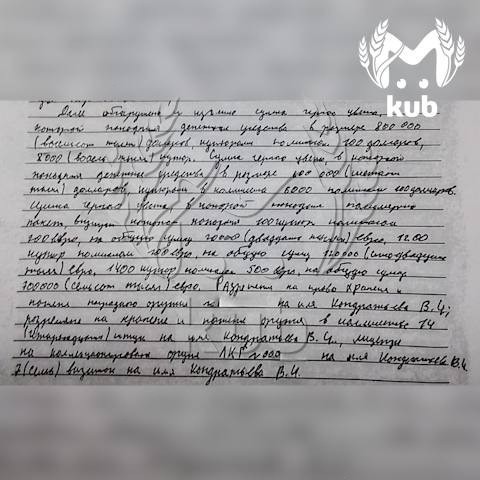 kub
Далее обнаружена и изъята сумка черного цвета, в
которой находятся денежные средства в размере 800 000
(восемьсот тысяч) долларов, купюрами номиналом 100 долларов,
8000 (восемь тысяч) купюр. Сумка черного цвета, в которой
находятся денежные средства в размере 600 000 (шестьсот
тысяч) долларов, купюрами в количестве 6000 номиналом 100 долларов.
Сумка черного цвета в которой находится полимерный
пакет, внутри которого находятся 100 купюр номиналом
200 евро, на общую сумму 20000 (двадцать тысяч) евро, 1200
купюр номиналом 100 евро, на общую сумму 120000 (сто двадцать
тысяч) евро, 1400 купюр номиналом 500 евро на общую сумму
700000 (семьсот тысяч) евро. Разрешение на право хранения и
ношения наградного оружия на имя Кондратьева В.Ч.,
разрешение на хранение и ношение оружия в количестве 14
(четырнадцати) штук на имя Кондратьева В.Ч., лицензия
на коллекционирование оружия ЛКГ № 000 на имя Кондратьева В.Ч.
7 (семь) визиток на имя Кондратьева В.Ч.